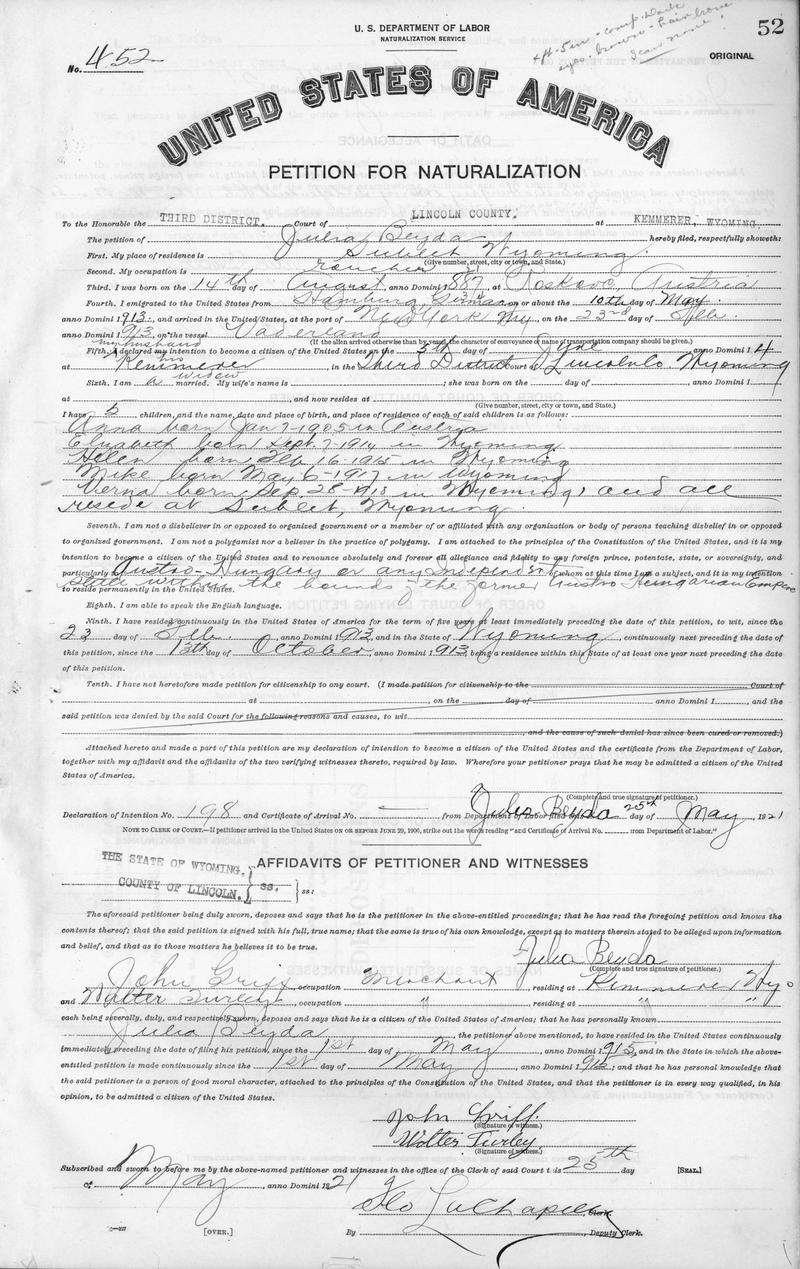 52
U. S. DEPARTMENT OF LABOR
NATURALIZATION SERVICE
4ft-5in-comp. Dark
eyes brown-hair brown
Scar none.
No. 452
ORIGINAL
UNITED STATES OF AMERICA
PETITION FOR NATURALIZATION
To the Honorable the THIRD DISTRICT. Court of LINCOLN COUNTY. at KEMMERER, WYOMING.
The petition of Julia Beyda hereby filed, respectfully showeth:
First. My place of residence is Sublet Wyoming.
(Give number, street, city or town, and State.)
Second. My occupation is
Third. I was born on the 14th day of August, anno Domini 1887, at Koskovc, Austria
Fourth. I emigrated to the United States from Hamburg, Germany on or about the 10th day of May
anno Domini 1913, and arrived in the United States, at the port of New York Ny, on the 23rd day of Feb.
anno Domini 1913, on the vessel Vaderland
(If the alien arrived otherwise than by vessel, the character of conveyance or name of transportation company should be given.)
my husband
Fifth. I declared my intention to become a citizen of the United States on the 5th day of June anno Domini 14
at Kemmerer, in the Third District Court of Lincoln Co. Wyoming
Sixth. I am a widow married. My wife's name is ; she was born on the day of , anno Domini 1
at , and now resides at
(Give number, street, city or town, and State.)
I have 5 children, and the name, date and place of birth, and place of residence of each of said children is as follows:
Anna born Jan 7-1905 in Austria
Elizabeth born Sept. 7-1914 in Wyoming
Helen born Feb 16-1915 in Wyoming
Mike born May 6-1917 in Wyoming
Verna born Sep. 28-1918 in Wyoming, and all
reside at Sublet, Wyoming.
Seventh. I am not a disbeliever in or opposed to organized government or a member of or affiliated with any organization or body of persons teaching disbelief in or opposed
to organized government. I am not a polygamist nor a believer in the practice of polygamy. I am attached to the principles of the Constitution of the United States, and it is my
intention to become a citizen of the United States and to renounce absolutely and forever all allegiance and fidelity to any foreign prince, potentate, state, or sovereignty, and
particularly to Austro-Hungary or any Independent of whom at this time I am a subject, and it is my intention
state within the bounds of the former Austro Hungarian Empire
to reside permanently in the United States.
Eighth. I am able to speak the English language.
Ninth. I have resided continuously in the United States for the term of five years at least immediately preceding the date of this petition, to wit, since the
23 day of Feb., anno Domini 1913, and in the State of Wyoming, continuously next preceding the date of
this petition, since the 13th day of October, anno Domini 1913, being a residence within this State of at least one year next preceding the date
of this petition.
Tenth. I have not heretofore made petition for citizenship to any court. (I made petition for citizenship to the Court of
at , on the day of anno Domini 1 , and the
said petition was denied by the said Court for the following reasons and causes, to wit
and the cause of such denial has since been cured or removed.)
Attached hereto and made a part of this petition are my declaration of intention to become a citizen of the United States and the certificate from the Department of Labor,
together with my affidavit and the affidavits of the two verifying witnesses thereto, required by law. Wherefore your petitioner prays that he may be admitted a citizen of the United
States of America.
Julia Beyda
(Complete and true signature of petitioner.)
Declaration of Intention No. 198 and Certificate of Arrival No. from Department of Labor filed this 25th day of May, 1921
NOTE TO CLERK OF COURT.—If petitioner arrived in the United States ON OR BEFORE JUNE 29, 1906, strike out the words reading "and Certificate of Arrival No. from Department of Labor."
AFFIDAVITS OF PETITIONER AND WITNESSES
THE STATE OF WYOMING.
COUNTY OF LINCOLN. ss. ss:
The aforesaid petitioner being duly sworn, deposes and says that he is the petitioner in the above-entitled proceedings; that he has read the foregoing petition and knows the
contents thereof; that the said petition is signed with his full, true name; that the same is true of his own knowledge, except as to matters therein stated to be alleged upon information
and belief, and that as to those matters he believes it to be true.
Julia Beyda
(Complete and true signature of petitioner.)
John Griff, occupation Merchant, residing at Kemmerer Wyo
and Walter Turley, occupation ", residing at " "
each being severally, duly, and respectively sworn, deposes and says that he is a citizen of the United States of America; that he has personally known
Julia Beyda, the petitioner above mentioned, to have resided in the United States continuously
immediately preceding the date of filing his petition, since the 1st day of May, anno Domini 1915, and in the State in which the above-
entitled petition is made continuously since the 1st day of May, anno Domini 1915; and that he has personal knowledge that
the said petitioner is a person of good moral character, attached to the principles of the Constitution of the United States, and that the petitioner is in every way qualified, in his
opinion, to be admitted a citizen of the United States.
John Griff.
(Signature of witness.)
Walter Turley.
(Signature of witness.)
Subscribed and sworn to before me by the above-named petitioner and witnesses in the office of the Clerk of said Court this 25th day [SEAL.]
of May, anno Domini 1921
Flo LaChapelle, Clerk.
[OVER.] By , Deputy Clerk.